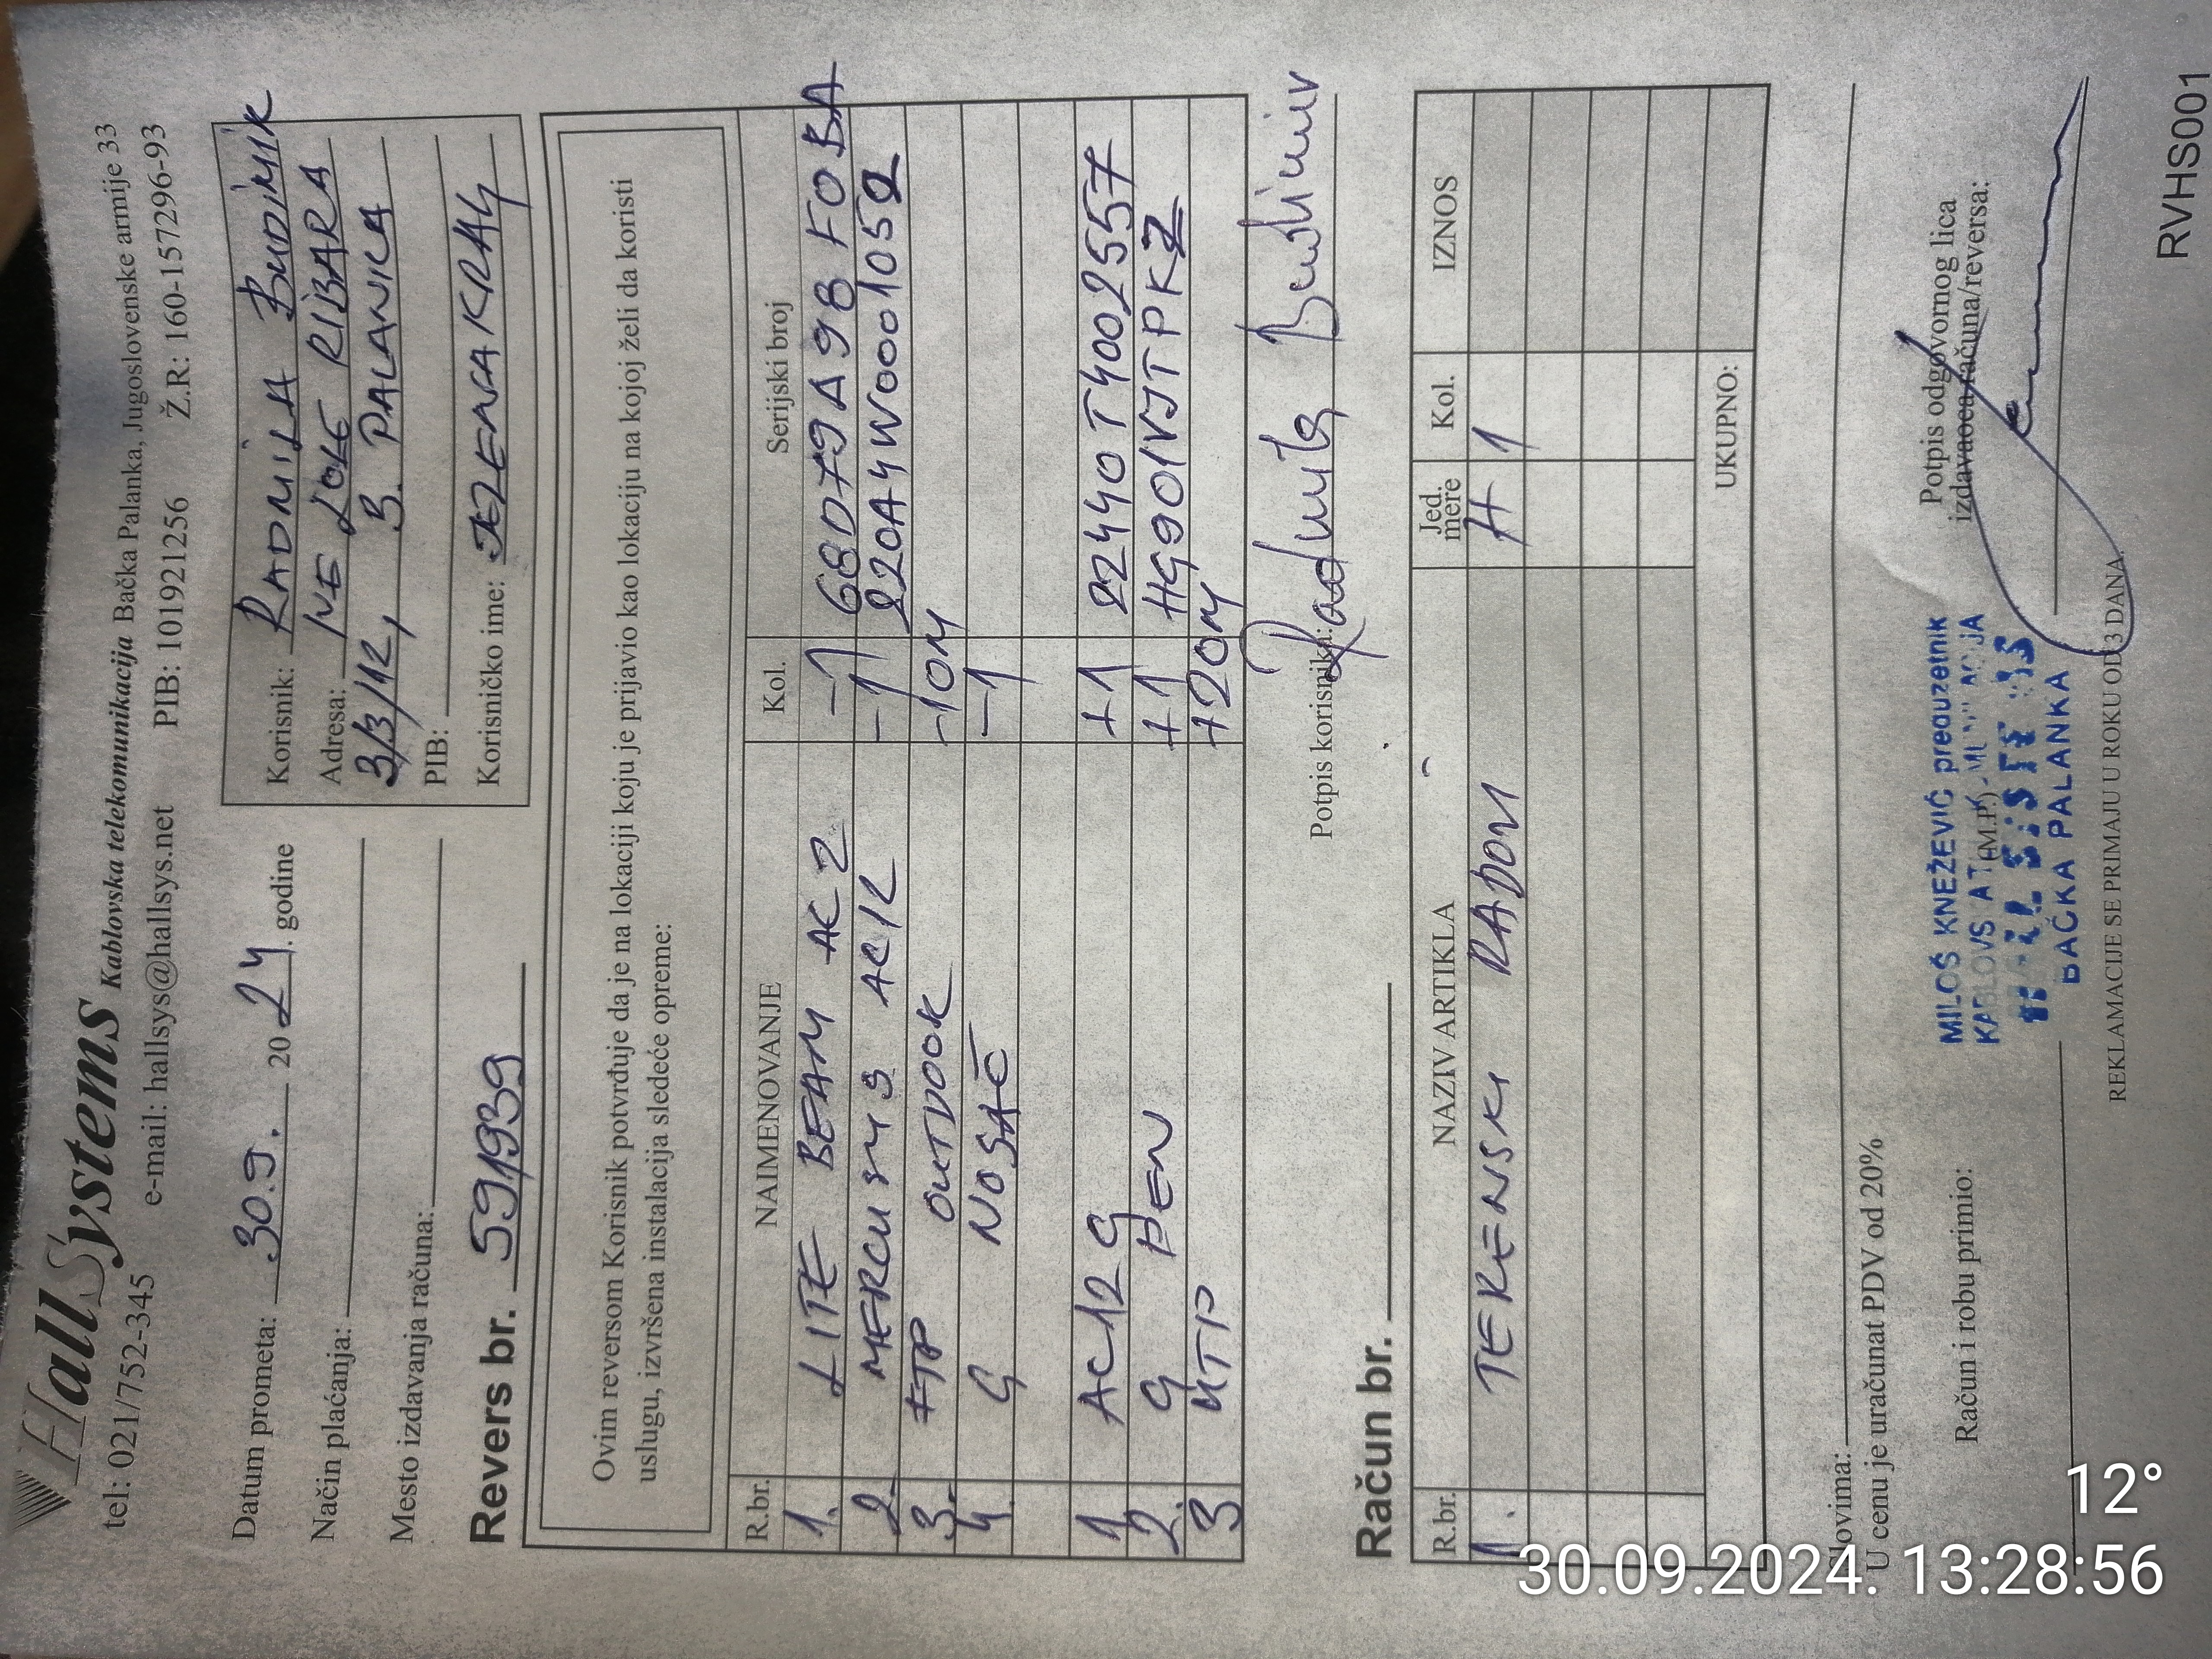 HallSystems Kablovska telekomunikacija Bačka Palanka, Jugoslovenske armije 33
tel: 021/752-345 e-mail: hallsys@hallsys.net PIB: 101921256 Ž.R: 160-157296-93
Datum prometa: 30.9. 2024. godine
Način plaćanja:
Mesto izdavanja računa:
Korisnik: RADMILA BUDIMIR
Adresa: IVE LOLE RIBARA
3/3/12, B. PALANKA
PIB:
Korisničko ime: JELENAKRAG
Revers br. 591939
Ovim reversom Korisnik potvrđuje da je na lokaciji koju je prijavio kao lokaciju na kojoj želi da koristi
uslugu, izvršena instalacija sledeće opreme:
R.br. NAIMENOVANJE Kol. Serijski broj
1. LITE BEAM AC 2 -1 68D79A98F0BA
2. MERCUSYS AC12 -1 220A4W0001052
3. FTP OUTDOOR -10M
4. G NOSAČ -1
1 AC12 G +1 22440T4002557
2. G PEN +1 HG901VJTPKZ
3 UTP +20M
Potpis korisnika: Radmila Budimir
Račun br.
R.br. NAZIV ARTIKLA Jed. mere Kol. IZNOS
1. TERENSKI RADOVI H 1
UKUPNO:
Slovima:
U cenu je uračunat PDV od 20%
Račun i robu primio:
(M.P.)
Potpis odgovornog lica
izdavaoca računa/reversa:
MILOŠ KNEŽEVIĆ preduzetnik
BAČKA PALANKA
REKLAMACIJE SE PRIMAJU U ROKU OD 3 DANA.
RVHS001
12°
30.09.2024. 13:28:56